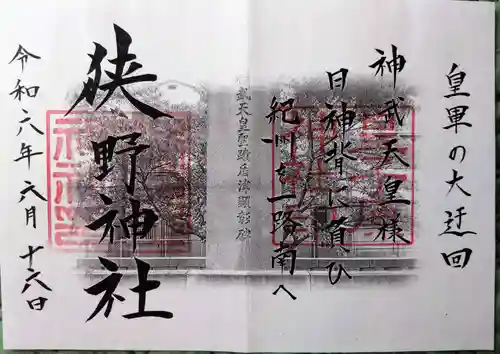 皇軍の大迂回
神武天皇様
日神背に負ひ
紀州を一路南へ
武天皇聖蹟居津顕彰碑
狭野神社
令和六年六月十六日